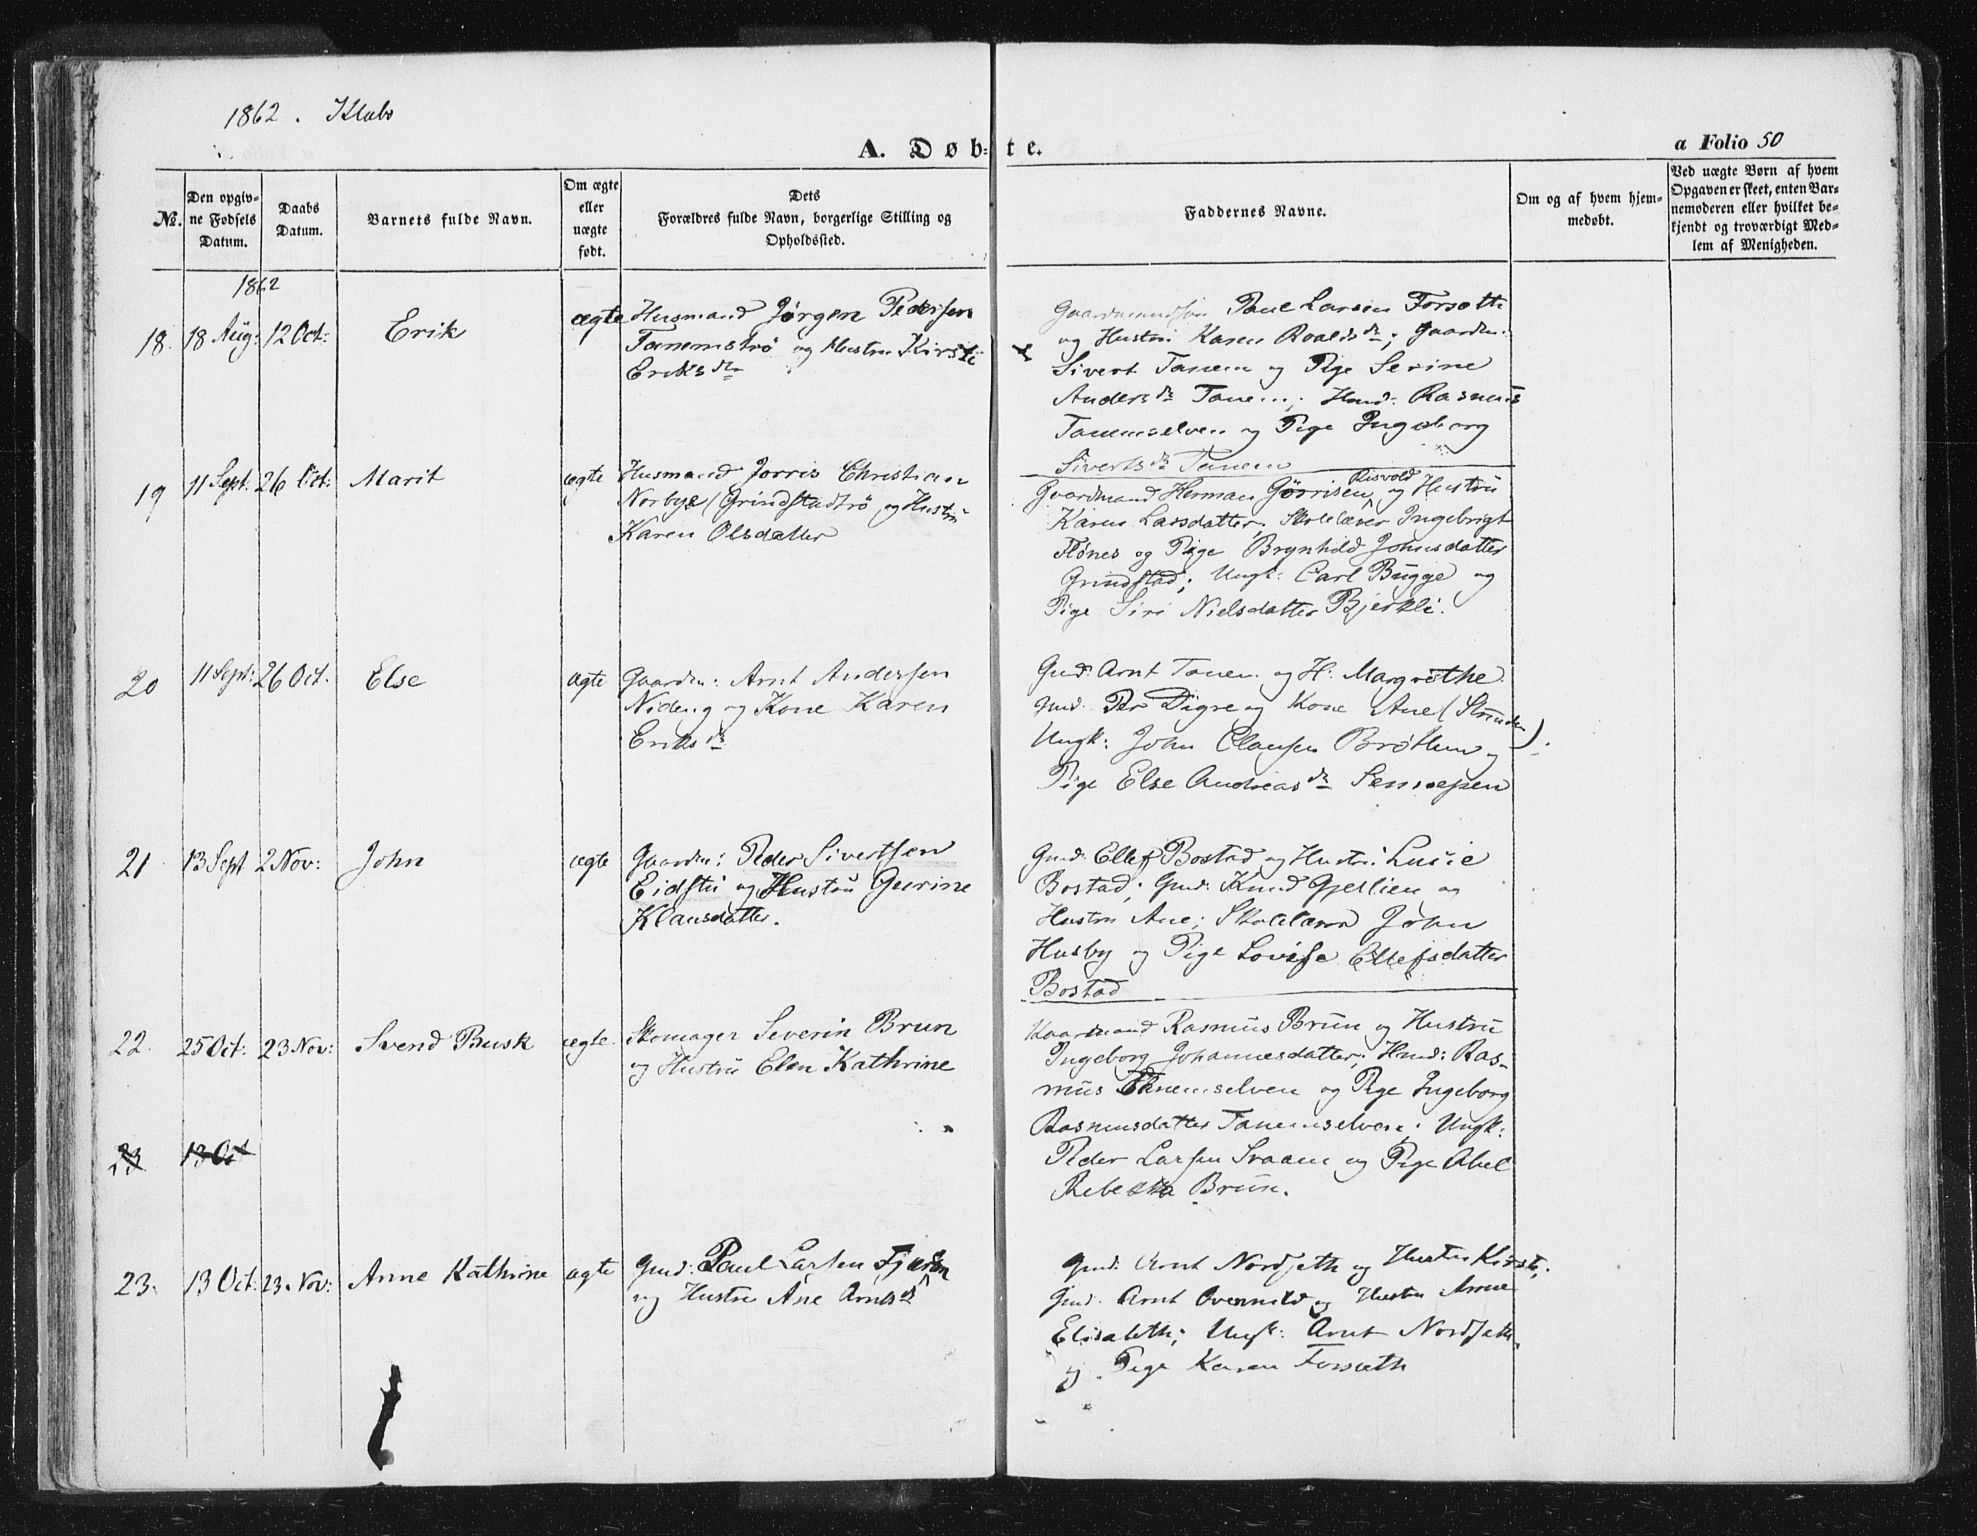 1862. Klæbo
A. Døbte.
a Folio 50
No.
Den opgivne Fødsels Datum.
Daabs Datum.
Barnets fulde Navn.
Om ægte eller uægte født.
Dets Forældres fulde Navn, borgerlige Stilling og Opholdssted.
Faddernes Navne.
Om og af hvem hjemmedøbt.
Ved uægte Børn af hvem Opgaven er skeet, enten Barnemoderen eller hvilket bekjendt og troværdigt Medlem af Menigheden.
1862
18. 18 Aug: 12 Oct: Erik ægte
Husmand Jørgen Pedersen
Tanemstrø og Hustru Kirsti
Eriksdr
Gaardmand Paul Larsen Forseth
og Hustru Karen Roaldsdr; Gaardm:
Sivert Tanem og Pige Serine
Andersdr Tanem; Hmd: Rasmus
Tanemselven og Pige Ingeborg
Sivertsdr Tanem
19 11 Sept: 26 Oct: Marit ægte
Husmand Jorris Christian
Norbye (Grindstadtrø og Hustru
Karen Olsdatter
Gaardmand Herman Gørrisen Risvold og Hustru
Karen Larsdatter, Skolelærer Ingebrigt
Flønes og Pige Brynhild Johnsdatter
Grindstad; Ungk: Carl Bugge og
Pige Siri Nielsdatter Bjerkli.
20 11 Sept: 26 Oct. Else ægte
Gaardm: Arnt Andersen
Nideng og Kone Karen
Eriksdr
Gmd: Arnt Tanem og H: Margrethe
Gmd: Per Digre og Kone Ane (Strinden)
Ungk: John Clausen Brøttem og
Pige Else Andreasdr Semsepen
21 13 Sept 2 Nov: John ægte
Gaardm: Peder Sivertsen
Eidstu og Hustru Gurine
Klausdatter.
Gmd: Ellef Bostad og Hustru Lusie
Bostad; Gmd: Knud Gjellien og
Hustru Ane; Skolelærer John
Husby og Pige Lovise Ellefsdatter
Bostad
22. 25 Oct: 23 Nov: Svend Busk ægte
Skomager Severin Brun
og Hustru Elen Kathrine
Gaardmand Rasmus Brun og Hustru
Ingeborg Johannesdatter; Hmd: Ras-
mus Tanemselven og Pige Ingeborg
Rasmusdatter Tanemselven; Ungk:
Peder Larsen Svaan og Pige Abel
Rebekka Brun.
23 13 Oct
23. 13 Oct: 23. Nov: Anne Kathrine ægte
Gmd: Paul Larsen
og Hustru Ane Arntsdr
Gmd: Arnt Nordseth og Hustru Kirsti;
Gmd. Arnt Overvild og Hustru Anne
Elisabeth; Ungk: Arnt Nordseth
og Pige Karen Forseth